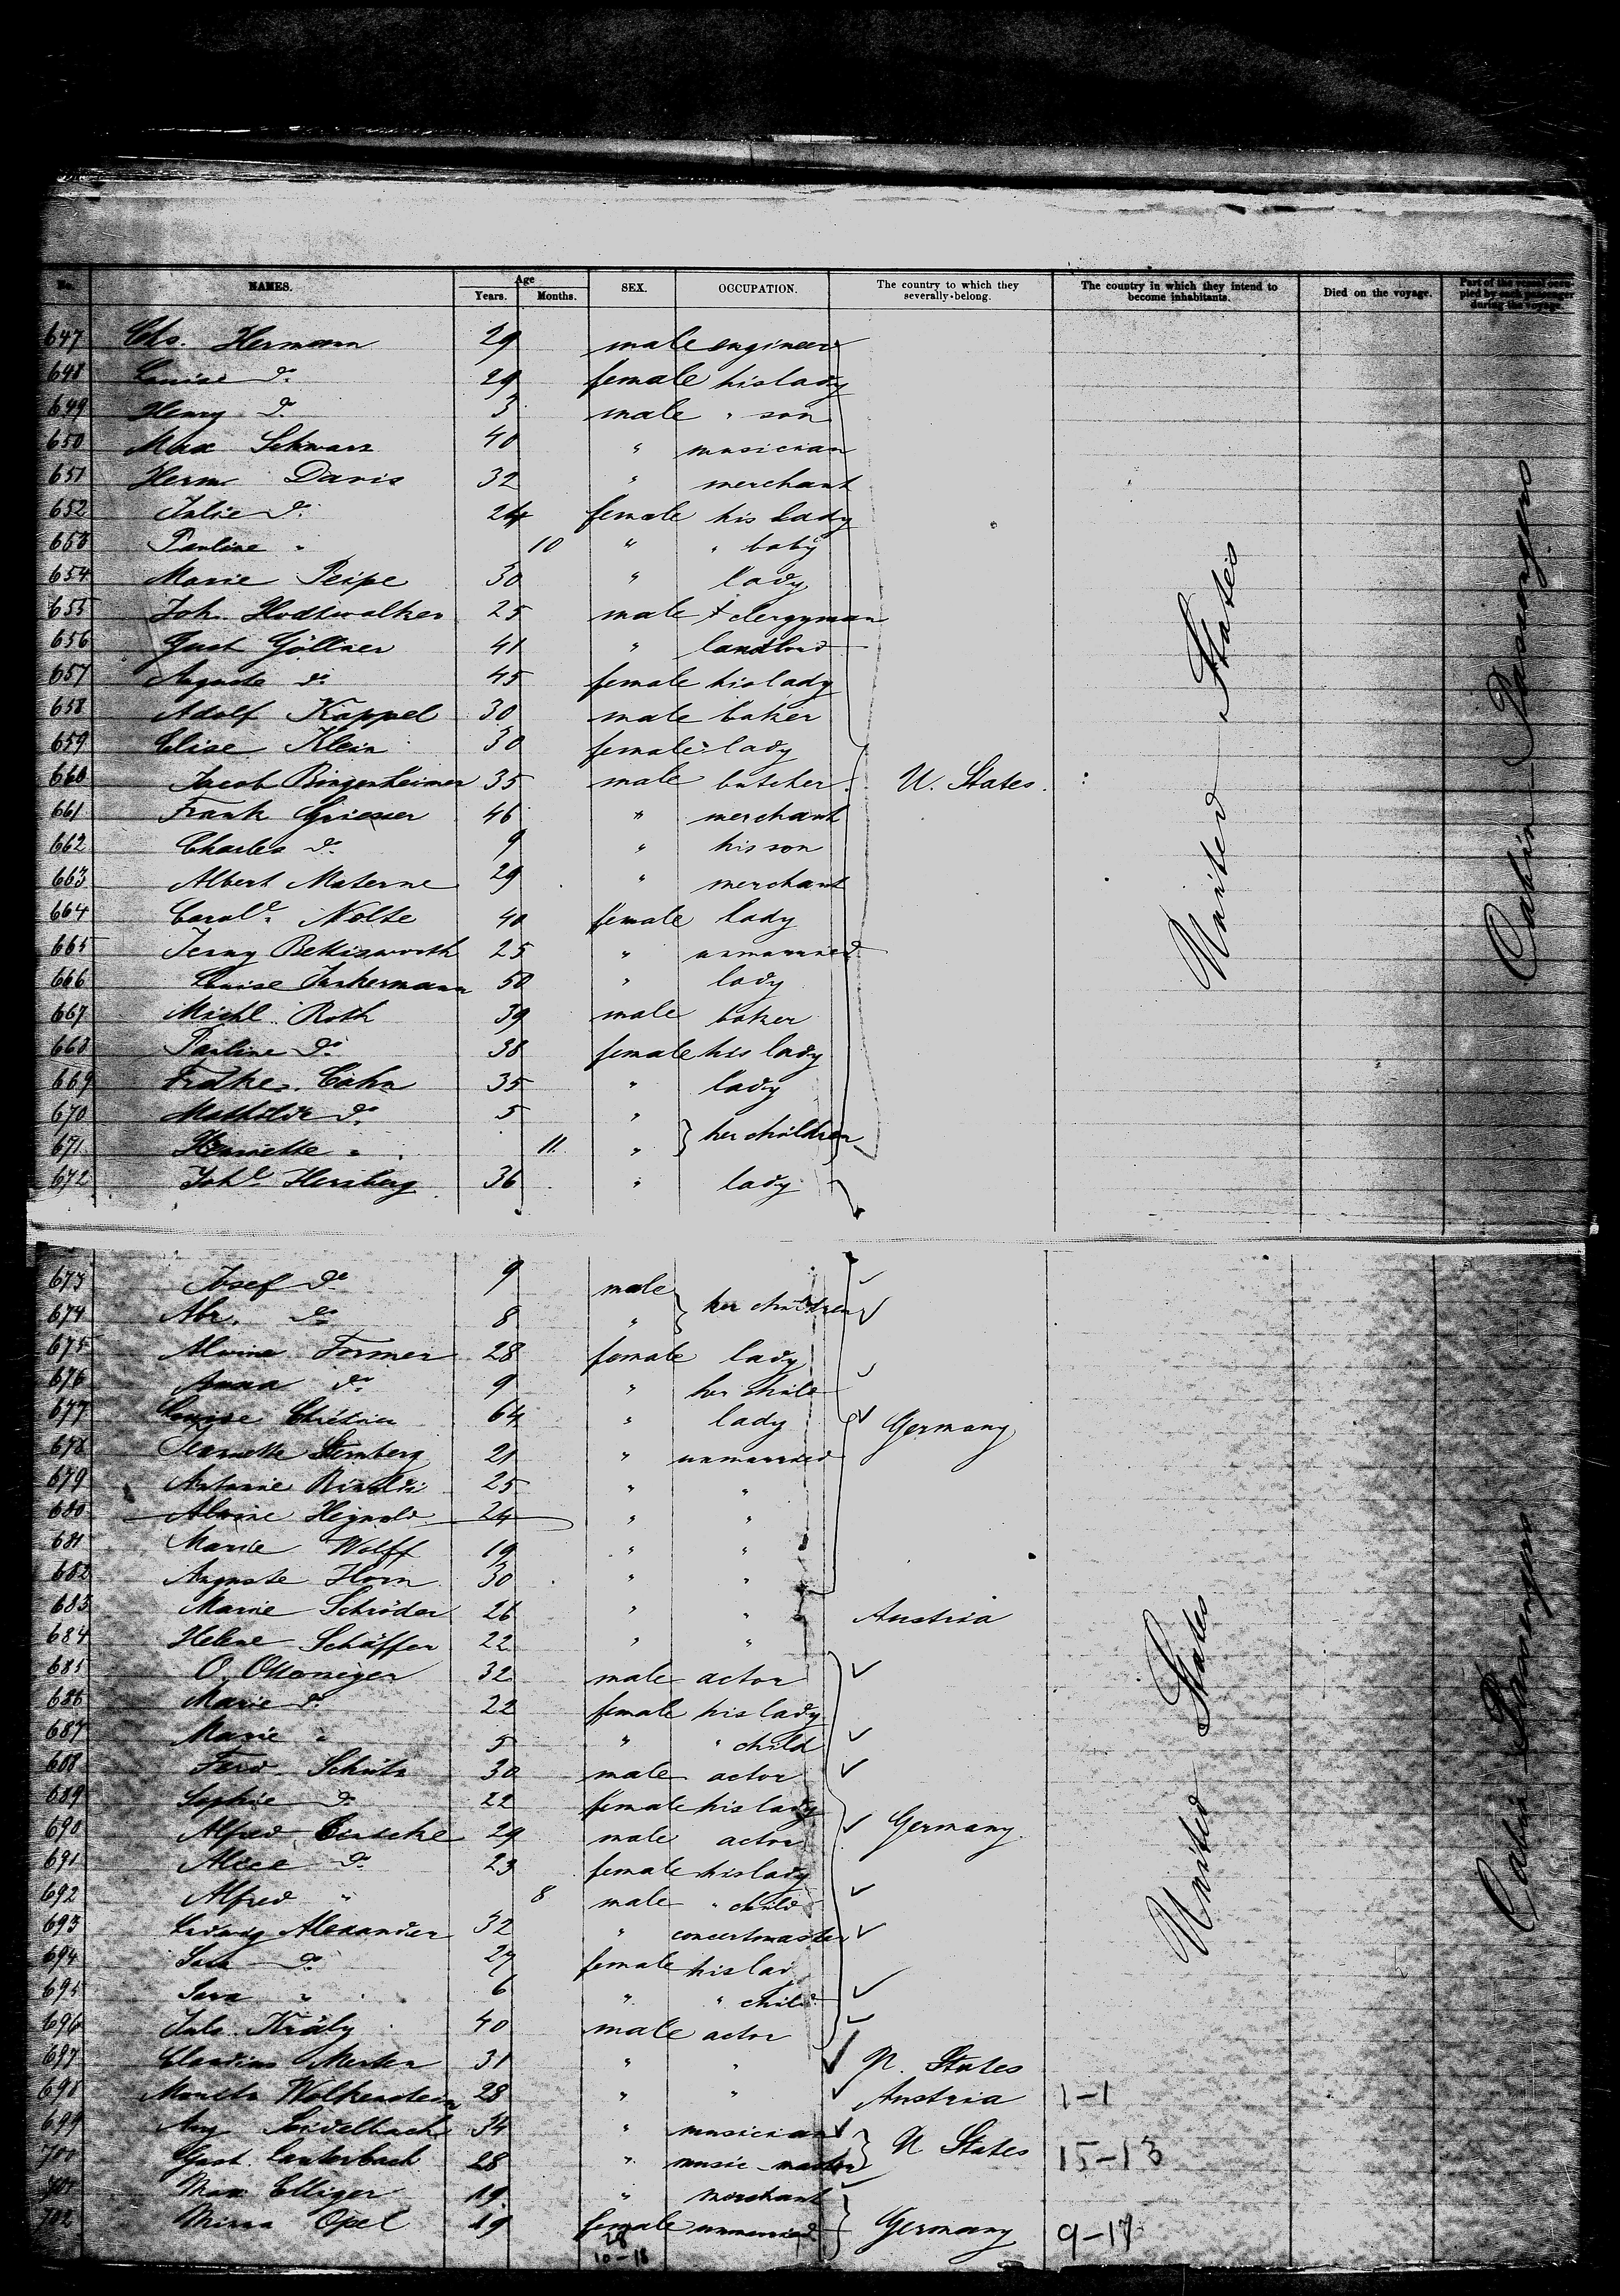 No. NAMES. Age Years. Months. SEX. OCCUPATION. The country to which they severally belong. The country in which they intend to become inhabitants. Died on the voyage. Part of the vessel occupied by each passenger during the voyage.
647 Chs. Hermann 29 male engineer
648 Louise do. 29 female his lady
649 Henry do. 3 male " son
650 Max Schwarz 40 " musician
651 Herm. Davis 32 " merchant
652 Julie do. 24 female his lady
653 Pauline " 10 " " baby
654 Marie Peipe 30 " lady
655 Joh. 25 male clergyman
656 Gust Göllner 41 " landlord
657 Auguste do. 45 female his lady
658 Adolf Kappel 30 male baker
659 Elise Klein 30 female lady
660 Jacob Bingenheimer 35 male butcher U. States
661 Frank Griesser 46 " merchant
662 Charles do. 9 " his son
663 Albert Materne 29 " merchant
664 Carole. Nolte 40 female lady
665 Jenny Bettisworth 25 " unmarried
666 Louise 50 " lady
667 Michl. Roth 39 male baker
668 Pauline do. 38 female his lady
669 Fredke. Cahn 35 " lady
670 Mathilde do. 5 "
671 Henriette " 11 " her children
672 Johe. Herzberg 36 " lady
United States
Cabin Passengers
673 Josef do. 9 male
674 Abr. do. 8 " her children
675 Alwine Former 28 female lady
676 Anna do. 9 " her child
677 Louise 64 " lady Germany
678 Jeanette Sternberg 21 " unmarried
679 Antonie 25 " "
680 Alwine 24 " "
681 Marie Wolff 19 " "
682 Auguste Horn 30 " "
683 Marie Schröder 26 " " Austria
684 Helene Schäffer 22 " "
685 O. Ottomeyer 32 male actor
686 Marie do. 22 female his lady
687 Marie " 5 " " child
688 Ferd. Schütz 30 male actor
689 Sophie do. 22 female his lady
690 Alfred 29 male actor Germany
691 Alice do. 23 female his lady
692 Alfred " 8 male " child
693 Ludwig Alexander 32 " concertmaster
694 do. 27 female his lad
695 Sara " 6 " " child
696 Juls. Kräly 40 male actor
697 Claudius Merten 31 " " U. States
698 Moritz 28 " " Austria 1-1
699 Aug 34 " musician
700 Gust. Lauterbach 28 " music-master U States 15-13
701 Max Elliger 19 " merchant
702 Minna Opel 19 female unmarried Germany 9-17
28
10-18
United States
Cabin Passengers